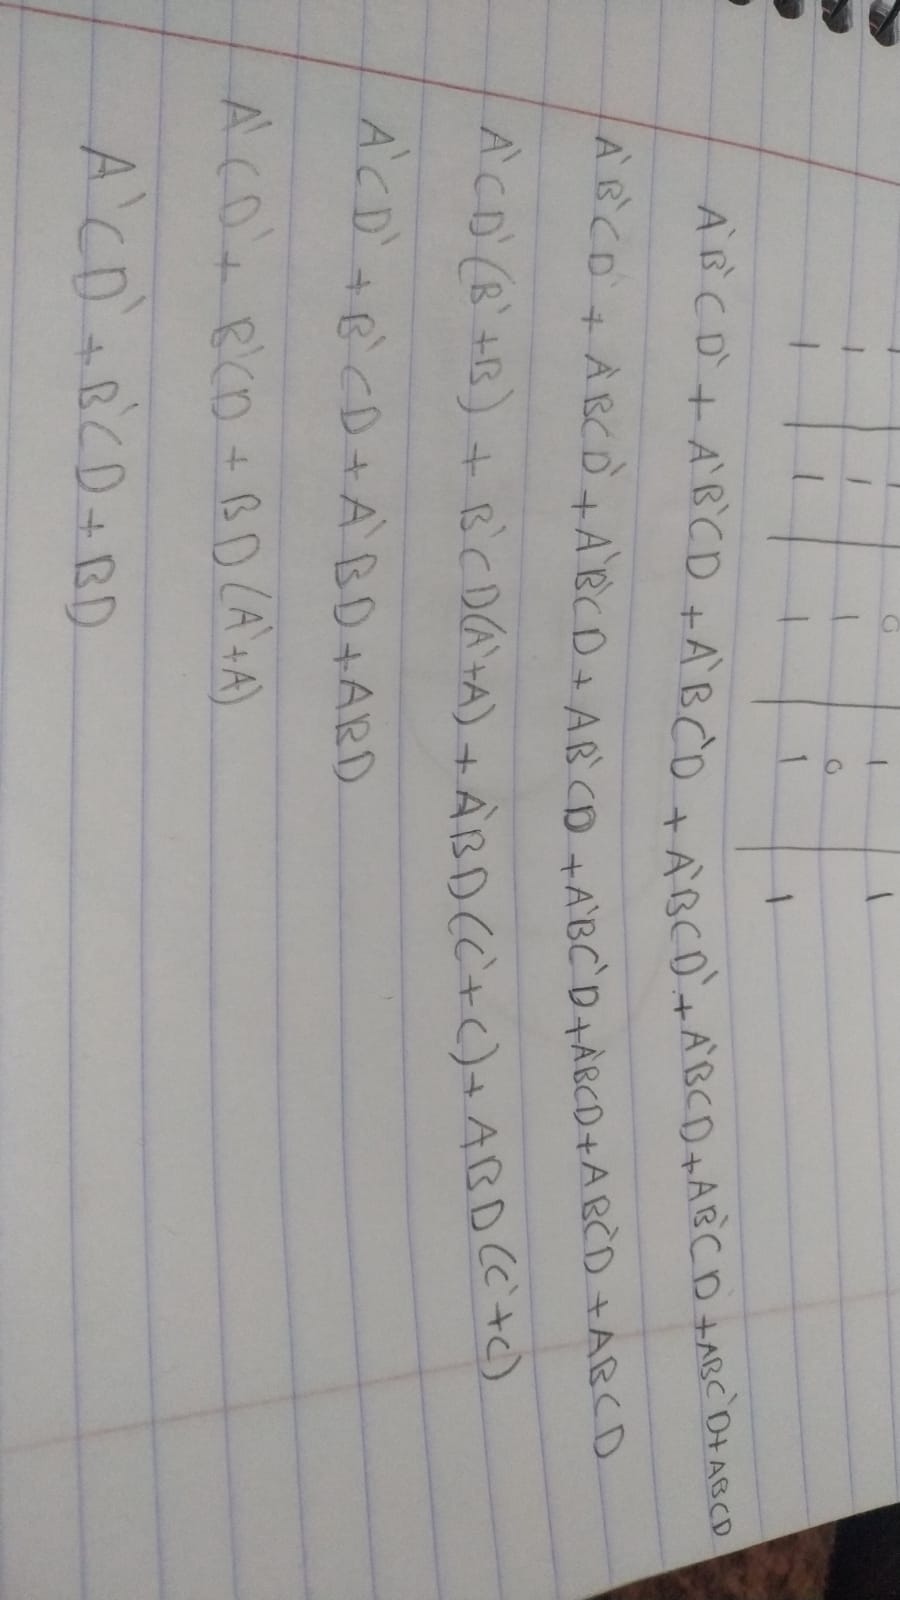 0 1 1
1 1 1 0
1 1 1 1 1
A'B'CD' + A'B'CD + A'BC'D + A'BCD' + A'BCD + AB'CD + ABC'D + ABCD
A'B'CD' + A'BCD' + A'B'CD + AB'CD + A'BC'D + A'BCD + ABC'D + ABCD
A'CD'(B'+B) + B'CD(A'+A) + A'BD(C'+C) + ABD(C'+C)
A'CD' + B'CD + A'BD + ABD
A'CD' + B'CD + BD(A'+A)
A'CD' + B'CD + BD